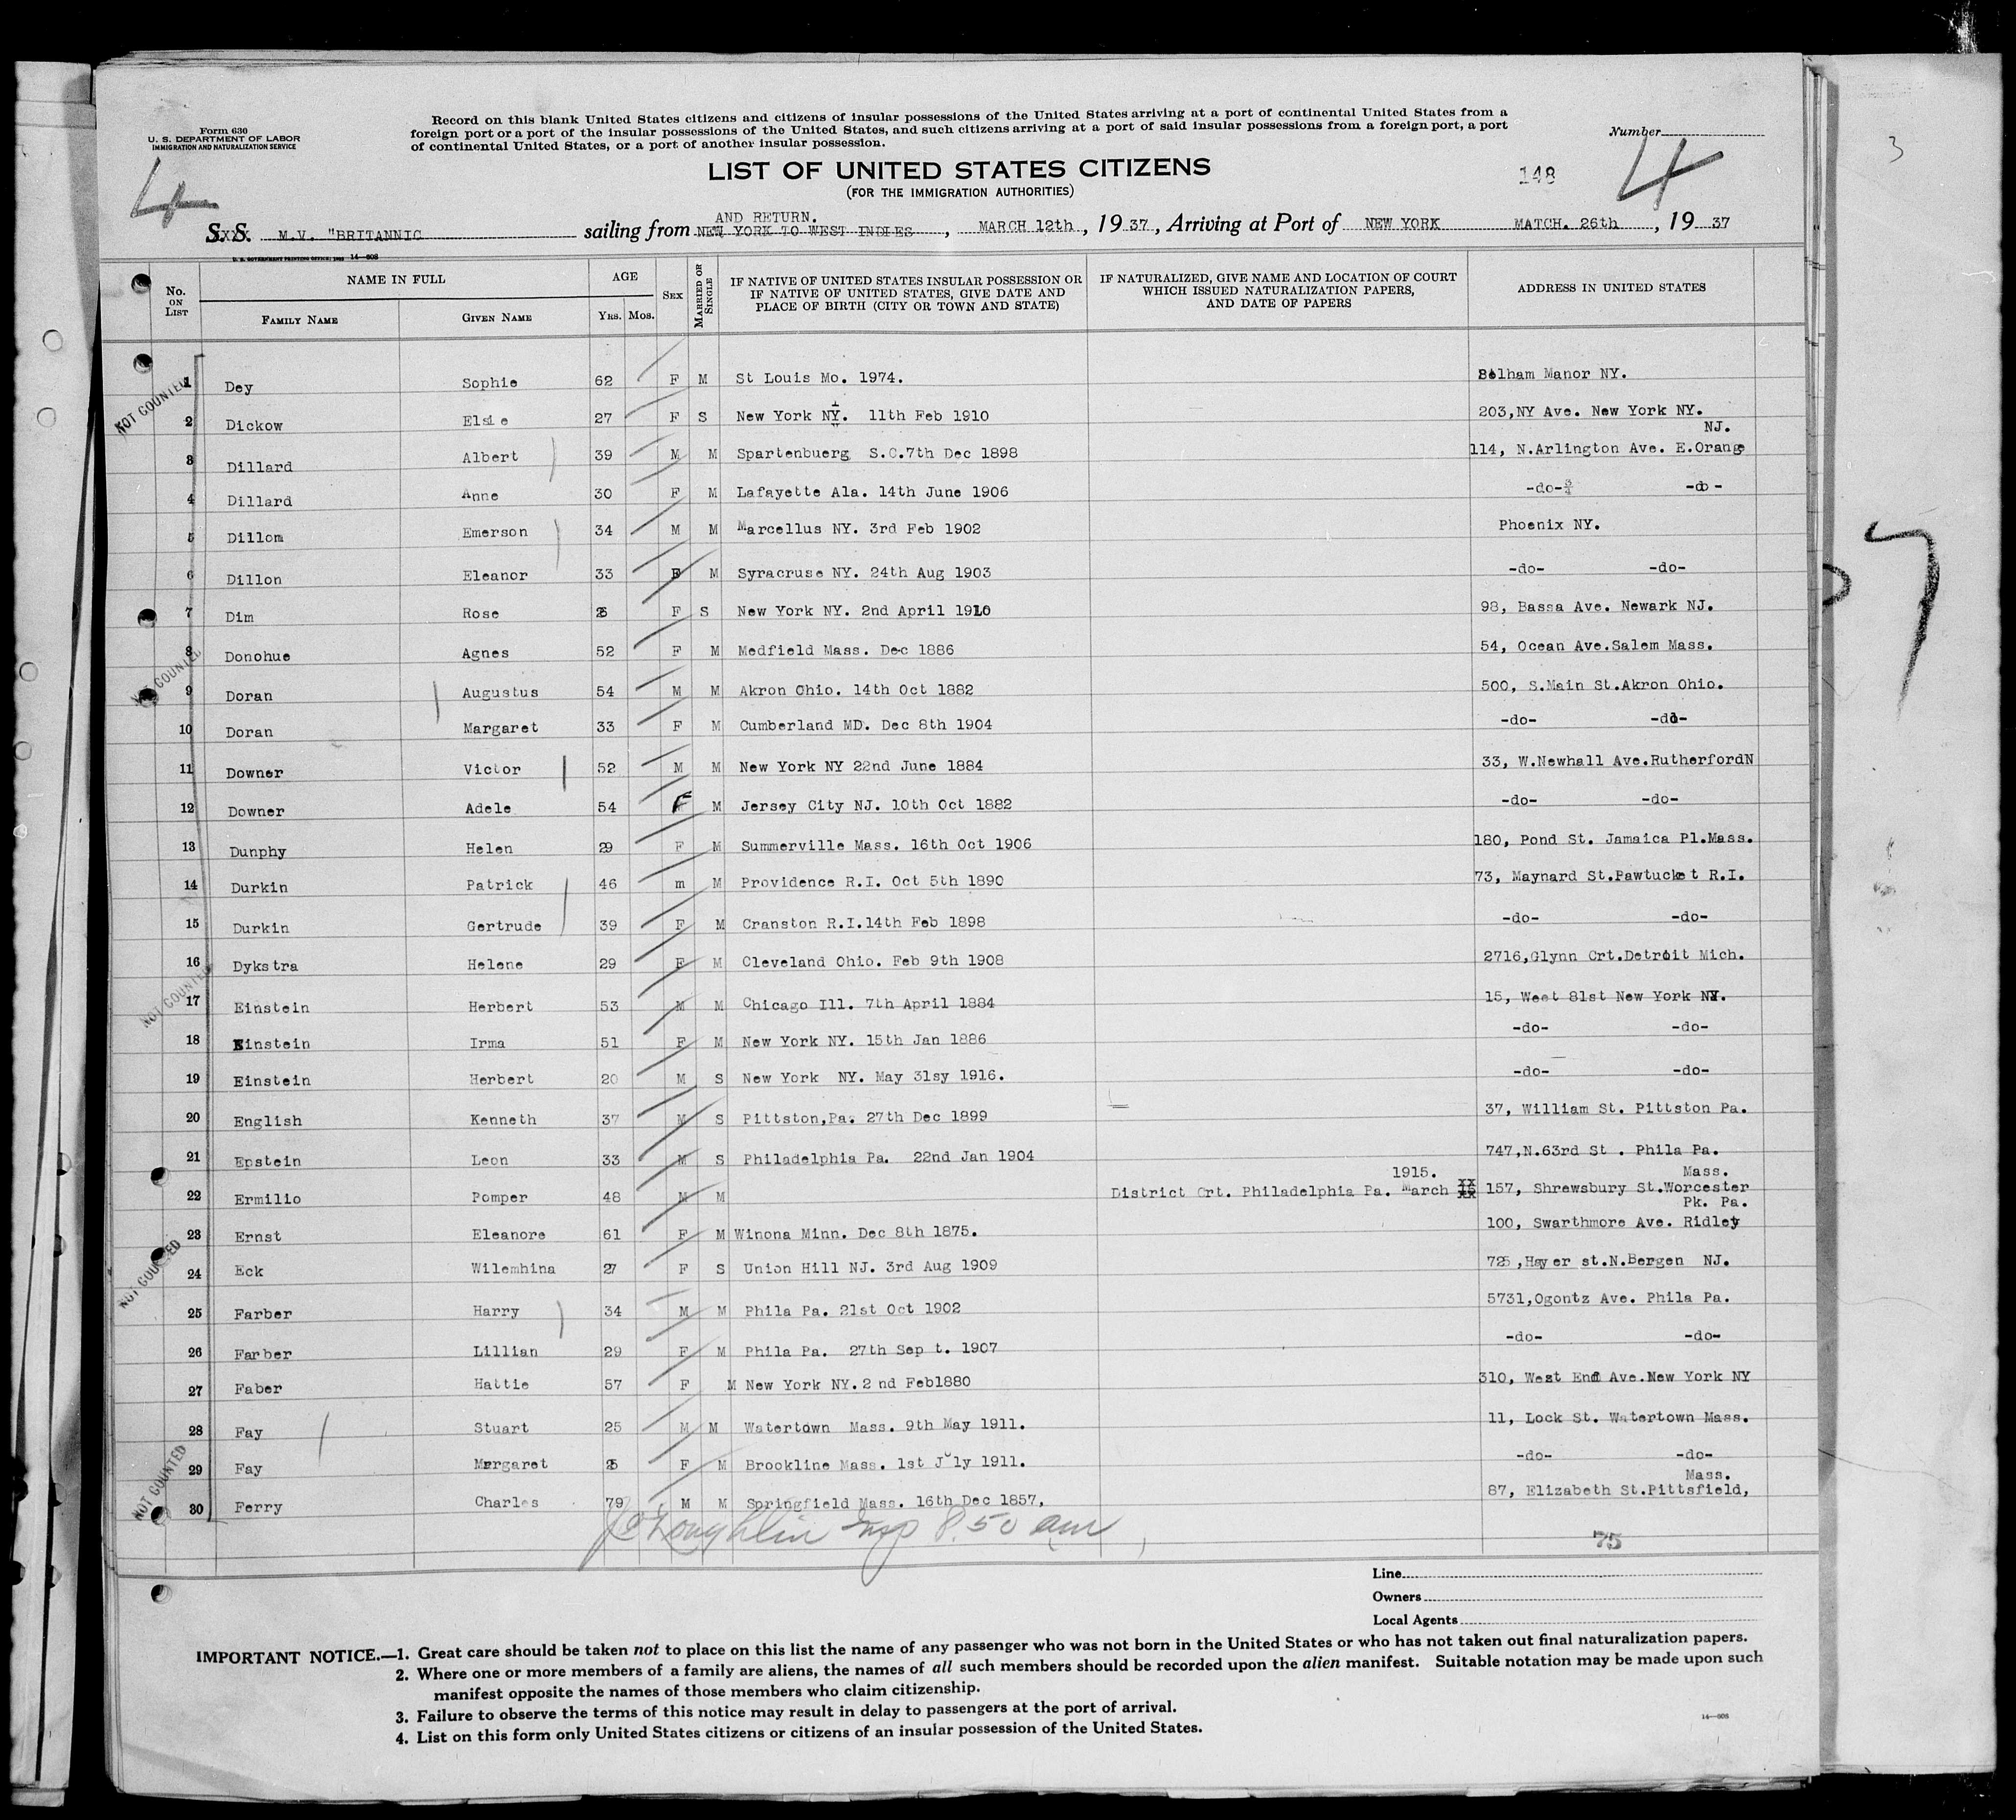 Form 630
U. S. DEPARTMENT OF LABOR
IMMIGRATION AND NATURALIZATION SERVICE
Record on this blank United States citizens and citizens of insular possessions of the United States arriving at a port of continental United States from a
foreign port or a port of the insular possessions of the United States, and such citizens arriving at a port of said insular possessions from a foreign port, a port
of continental United States, or a port of another insular possession.
Number
4
4
3
LIST OF UNITED STATES CITIZENS
(FOR THE IMMIGRATION AUTHORITIES)
148
AND RETURN.
S. S. M.V. "BRITANNIC sailing from NEW YORK TO WEST INDIES, MARCH 12th, 19 37, Arriving at Port of NEW YORK MATCH. 26th, 19 37
No. ON LIST NAME IN FULL AGE SEX MARRIED OR SINGLE IF NATIVE OF UNITED STATES INSULAR POSSESSION OR IF NATIVE OF UNITED STATES, GIVE DATE AND PLACE OF BIRTH (CITY OR TOWN AND STATE) IF NATURALIZED, GIVE NAME AND LOCATION OF COURT WHICH ISSUED NATURALIZATION PAPERS, AND DATE OF PAPERS ADDRESS IN UNITED STATES
FAMILY NAME GIVEN NAME YRS. MOS.
1 Dey Sophie 62 F M St Louis Mo. 1974. Manor NY.
2 Dickow Elsie 27 F S New York NY. 11th Feb 1910 203,NY Ave. New York NY.
NJ.
3 Dillard Albert 39 M M Spartenbuerg S.C.7th Dec 1898 114, N.Arlington Ave. E.Orange
4 Dillard Anne 30 F M Lafayette Ala. 14th June 1906 -do- -do-
5 Dillom Emerson 34 M M Marcellus NY. 3rd Feb 1902 Phoenix NY.
6 Dillon Eleanor 33 F M Syracruse NY. 24th Aug 1903 -do- -do-
7 Dim Rose F S New York NY. 2nd April 1910 98, Bassa Ave. Newark NJ.
8 Donohue Agnes 52 F M Medfield Mass. Dec 1886 54, Ocean Ave.Salem Mass.
9 Doran Augustus 54 M M Akron Ohio. 14th Oct 1882 500, S.Main St.Akron Ohio.
10 Doran Margaret 33 F M Cumberland MD. Dec 8th 1904 -do- -do-
11 Downer Victor 52 M M New York NY 22nd June 1884 33, W.Newhall Ave.RutherfordN
12 Downer Adele 54 F M Jersey City NJ. 10th Oct 1882 -do- -do-
13 Dunphy Helen 29 F M Summerville Mass. 16th Oct 1906 180, Pond St. Jamaica Pl.Mass.
14 Durkin Patrick 46 m M Providence R.I. Oct 5th 1890 73, Maynard St.Pawtucket R.I.
15 Durkin Gertrude 39 F M Cranston R.I.14th Feb 1898 -do- -do-
16 Dykstra Helene 29 F M Cleveland Ohio. Feb 9th 1908 2716,Glynn Crt.Detroit Mich.
17 Einstein Herbert 53 M M Chicago Ill. 7th April 1884 15, West 81st New York NY.
18 Einstein Irma 51 F M New York NY. 15th Jan 1886 -do- -do-
19 Einstein Herbert 20 M S New York NY. May 31sy 1916. -do- -do-
20 English Kenneth 37 M S Pittston,Pa. 27th Dec 1899 37, William St. Pittston Pa.
21 Epstein Leon 33 M S Philadelphia Pa. 22nd Jan 1904 747,N.63rd St . Phila Pa.
1915. Mass.
22 Ermilio Pomper 48 M M District Crt. Philadelphia Pa. March 157, Shrewsbury St.Worcester
Pk. Pa.
23 Ernst Eleanore 61 F M Winona Minn. Dec 8th 1875. 100, Swarthmore Ave. Ridley
24 Eck Wilemhina 27 F S Union Hill NJ. 3rd Aug 1909 725,Hayer st.N.Bergen NJ.
25 Farber Harry 34 M M Phila Pa. 21st Oct 1902 5731,Ogontz Ave. Phila Pa.
26 Farber Lillian 29 F M Phila Pa. 27th Sep t. 1907 -do- -do-
27 Faber Hattie 57 F M New York NY.2 nd Feb1880 310, West End Ave.New York NY
28 Fay Stuart 25 M M Watertown Mass. 9th May 1911. 11, Lock St. Watertown Mass.
29 Fay Margaret 25 F M Brookline Mass. 1st July 1911. -do- -do-
Mass.
30 Ferry Charles 79 M M Springfield Mass. 16th Dec 1857, 87, Elizabeth St.Pittsfield,
NOT COUNTED
NOT COUNTED
NOT COUNTED
NOT COUNTED
NOT COUNTED
Insp 8.50 am
75
Line
Owners
Local Agents
IMPORTANT NOTICE.—1. Great care should be taken not to place on this list the name of any passenger who was not born in the United States or who has not taken out final naturalization papers.
2. Where one or more members of a family are aliens, the names of all such members should be recorded upon the alien manifest. Suitable notation may be made upon such
manifest opposite the names of those members who claim citizenship.
3. Failure to observe the terms of this notice may result in delay to passengers at the port of arrival.
4. List on this form only United States citizens or citizens of an insular possession of the United States.
14—608